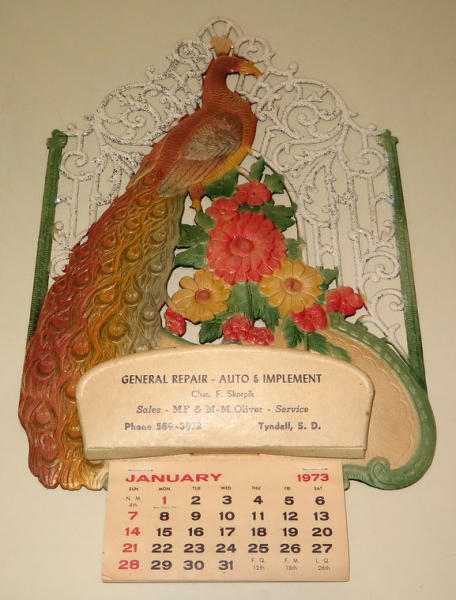 GENERAL REPAIR - AUTO & IMPLEMENT
Chas. F. Skorpik
Sales - MF & M-M Oliver - Service
Phone 589-3922 Tyndall, S. D.
JANUARY 1973
SUN MON TUE WED THU FRI SAT
N. M. 4th 1 2 3 4 5 6
7 8 9 10 11 12 13
14 15 16 17 18 19 20
21 22 23 24 25 26 27
28 29 30 31 F. Q. 12th F. M. 18th L. Q. 26th